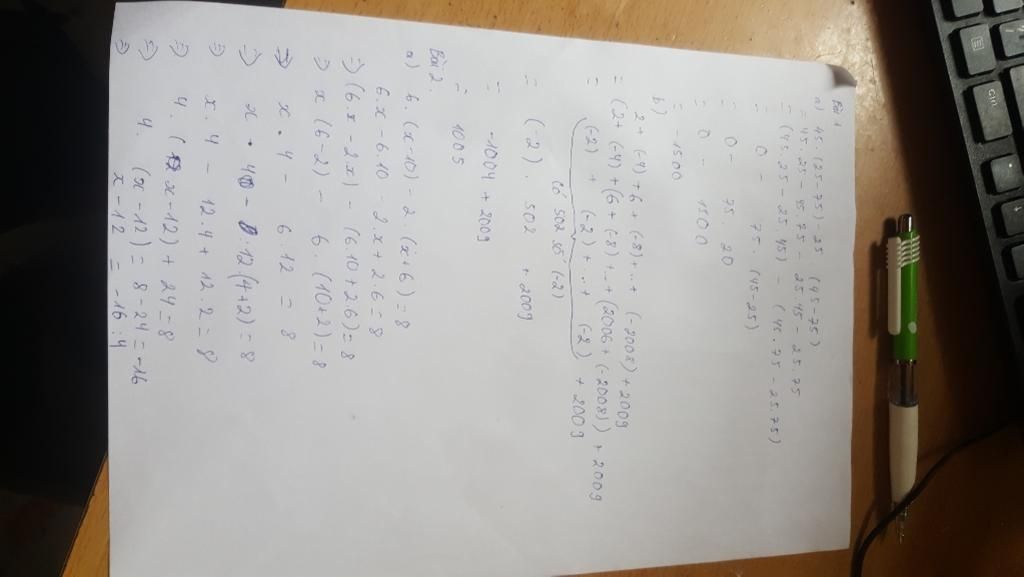 Bài 1
a) 45. (25-75) - 25 (45-75)
= 45.25 - 45.75 - 25.45 - 25.75
= (45.25 - 25.45) - (45.75 - 25.75)
= 0 - 75. (45-25)
= 0 - 75. 20
= 0 - 1500
= -1500
b) 2 + (-4) + 6 + (-8) + ... + (-2008) + 2009
= (2 + (-4) + (6 + (-8) + ... + (2006 + (-2008)) + 2009
= (-2) + (-2) + ... + (-2) + 2009
Có 502 số (-2)
= (-2). 502 + 2009
= -1004 + 2009
= 1005
Bài 2.
a) 6. (x-10) - 2. (x+6) = 8
6.x - 6.10 - 2.x + 2.6 = 8
=) (6x - 2x) - (6.10 + 2.6) = 8
=) x (6-2) - 6. (10+2) = 8
=) x . 4 - 6.12 = 8
=) x . 4 - 12.(4+2) = 8
=) x.4 - 12.4 + 12.2 = 8
=) 4. (x-12) + 24 = 8
=) 4. (x-12) = 8-24 = -16
=) x-12 = -16:4
Ctrl